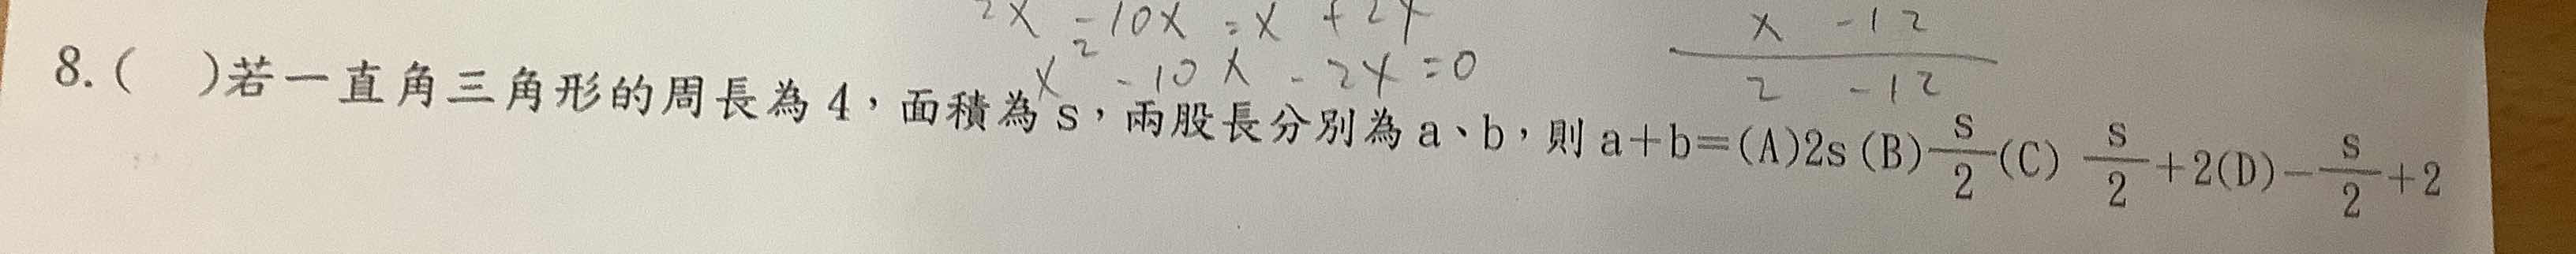 2x -10x = x + 24
x² - 10x - 24 = 0
x -12
2 -12
8.( )若一直角三角形的周長為4,面積為s,兩股長分別為a、b,則a+b=(A)2s(B)s/2(C) s/2+2(D)-s/2+2